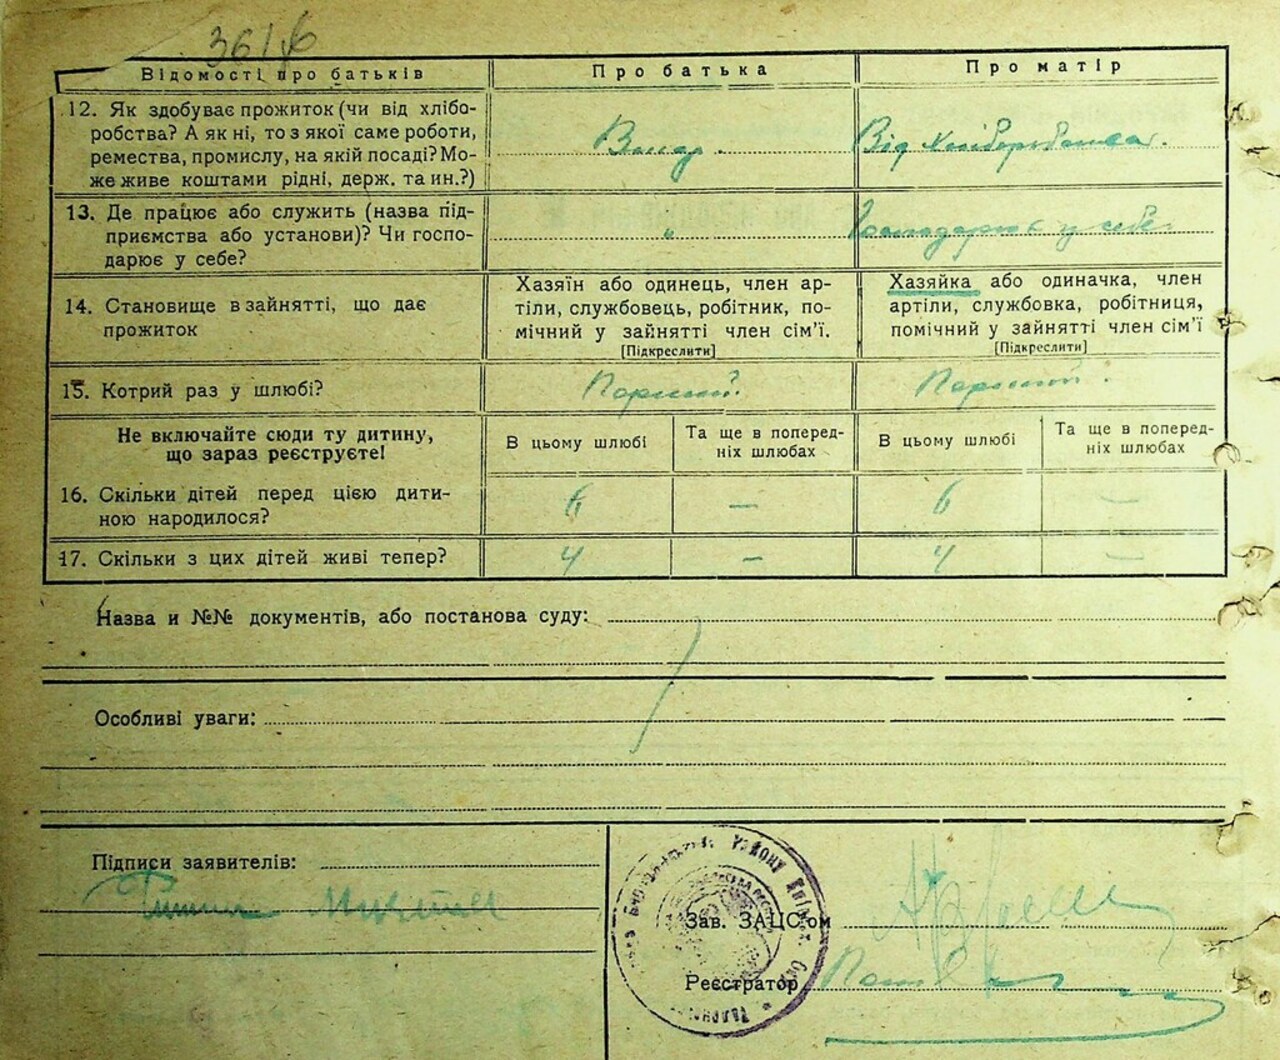 361
Відомості про батьків
Про батька
Про матір
12. Як здобуває прожиток (чи від хлібо-
робства? А як ні, то з якої саме роботи,
ремества, промислу, на якій посаді? Мо-
же живе коштами рідні, держ. та ин.?)
Від хліборобства.
13. Де працює або служить (назва під-
приємства або установи)? Чи госпо-
дарює у себе?
"
Господарює у себе.
14. Становище в зайнятті, що дає
прожиток
Хазяїн або одинець, член ар-
тіли, службовець, робітник, по-
мічний у зайнятті член сім'ї.
[Підкреслити]
Хазяйка або одиначка, член
артіли, службовка, робітниця,
помічний у зайнятті член сім'ї
[Підкреслити]
15. Котрий раз у шлюбі?
Перший
Перший.
Не включайте сюди ту дитину,
що зараз реєструєте!
В цьому шлюбі
Та ще в поперед-
ніх шлюбах
В цьому шлюбі
Та ще в поперед-
ніх шлюбах
16. Скільки дітей перед цією дити-
ною народилося?
6 — 6 —
17. Скільки з цих дітей живі тепер?
4 — 4 —
Назва и №№ документів, або постанова суду:
Особливі уваги:
Підписи заявителів:
Зав. ЗАЦС'ом
Реєстратор